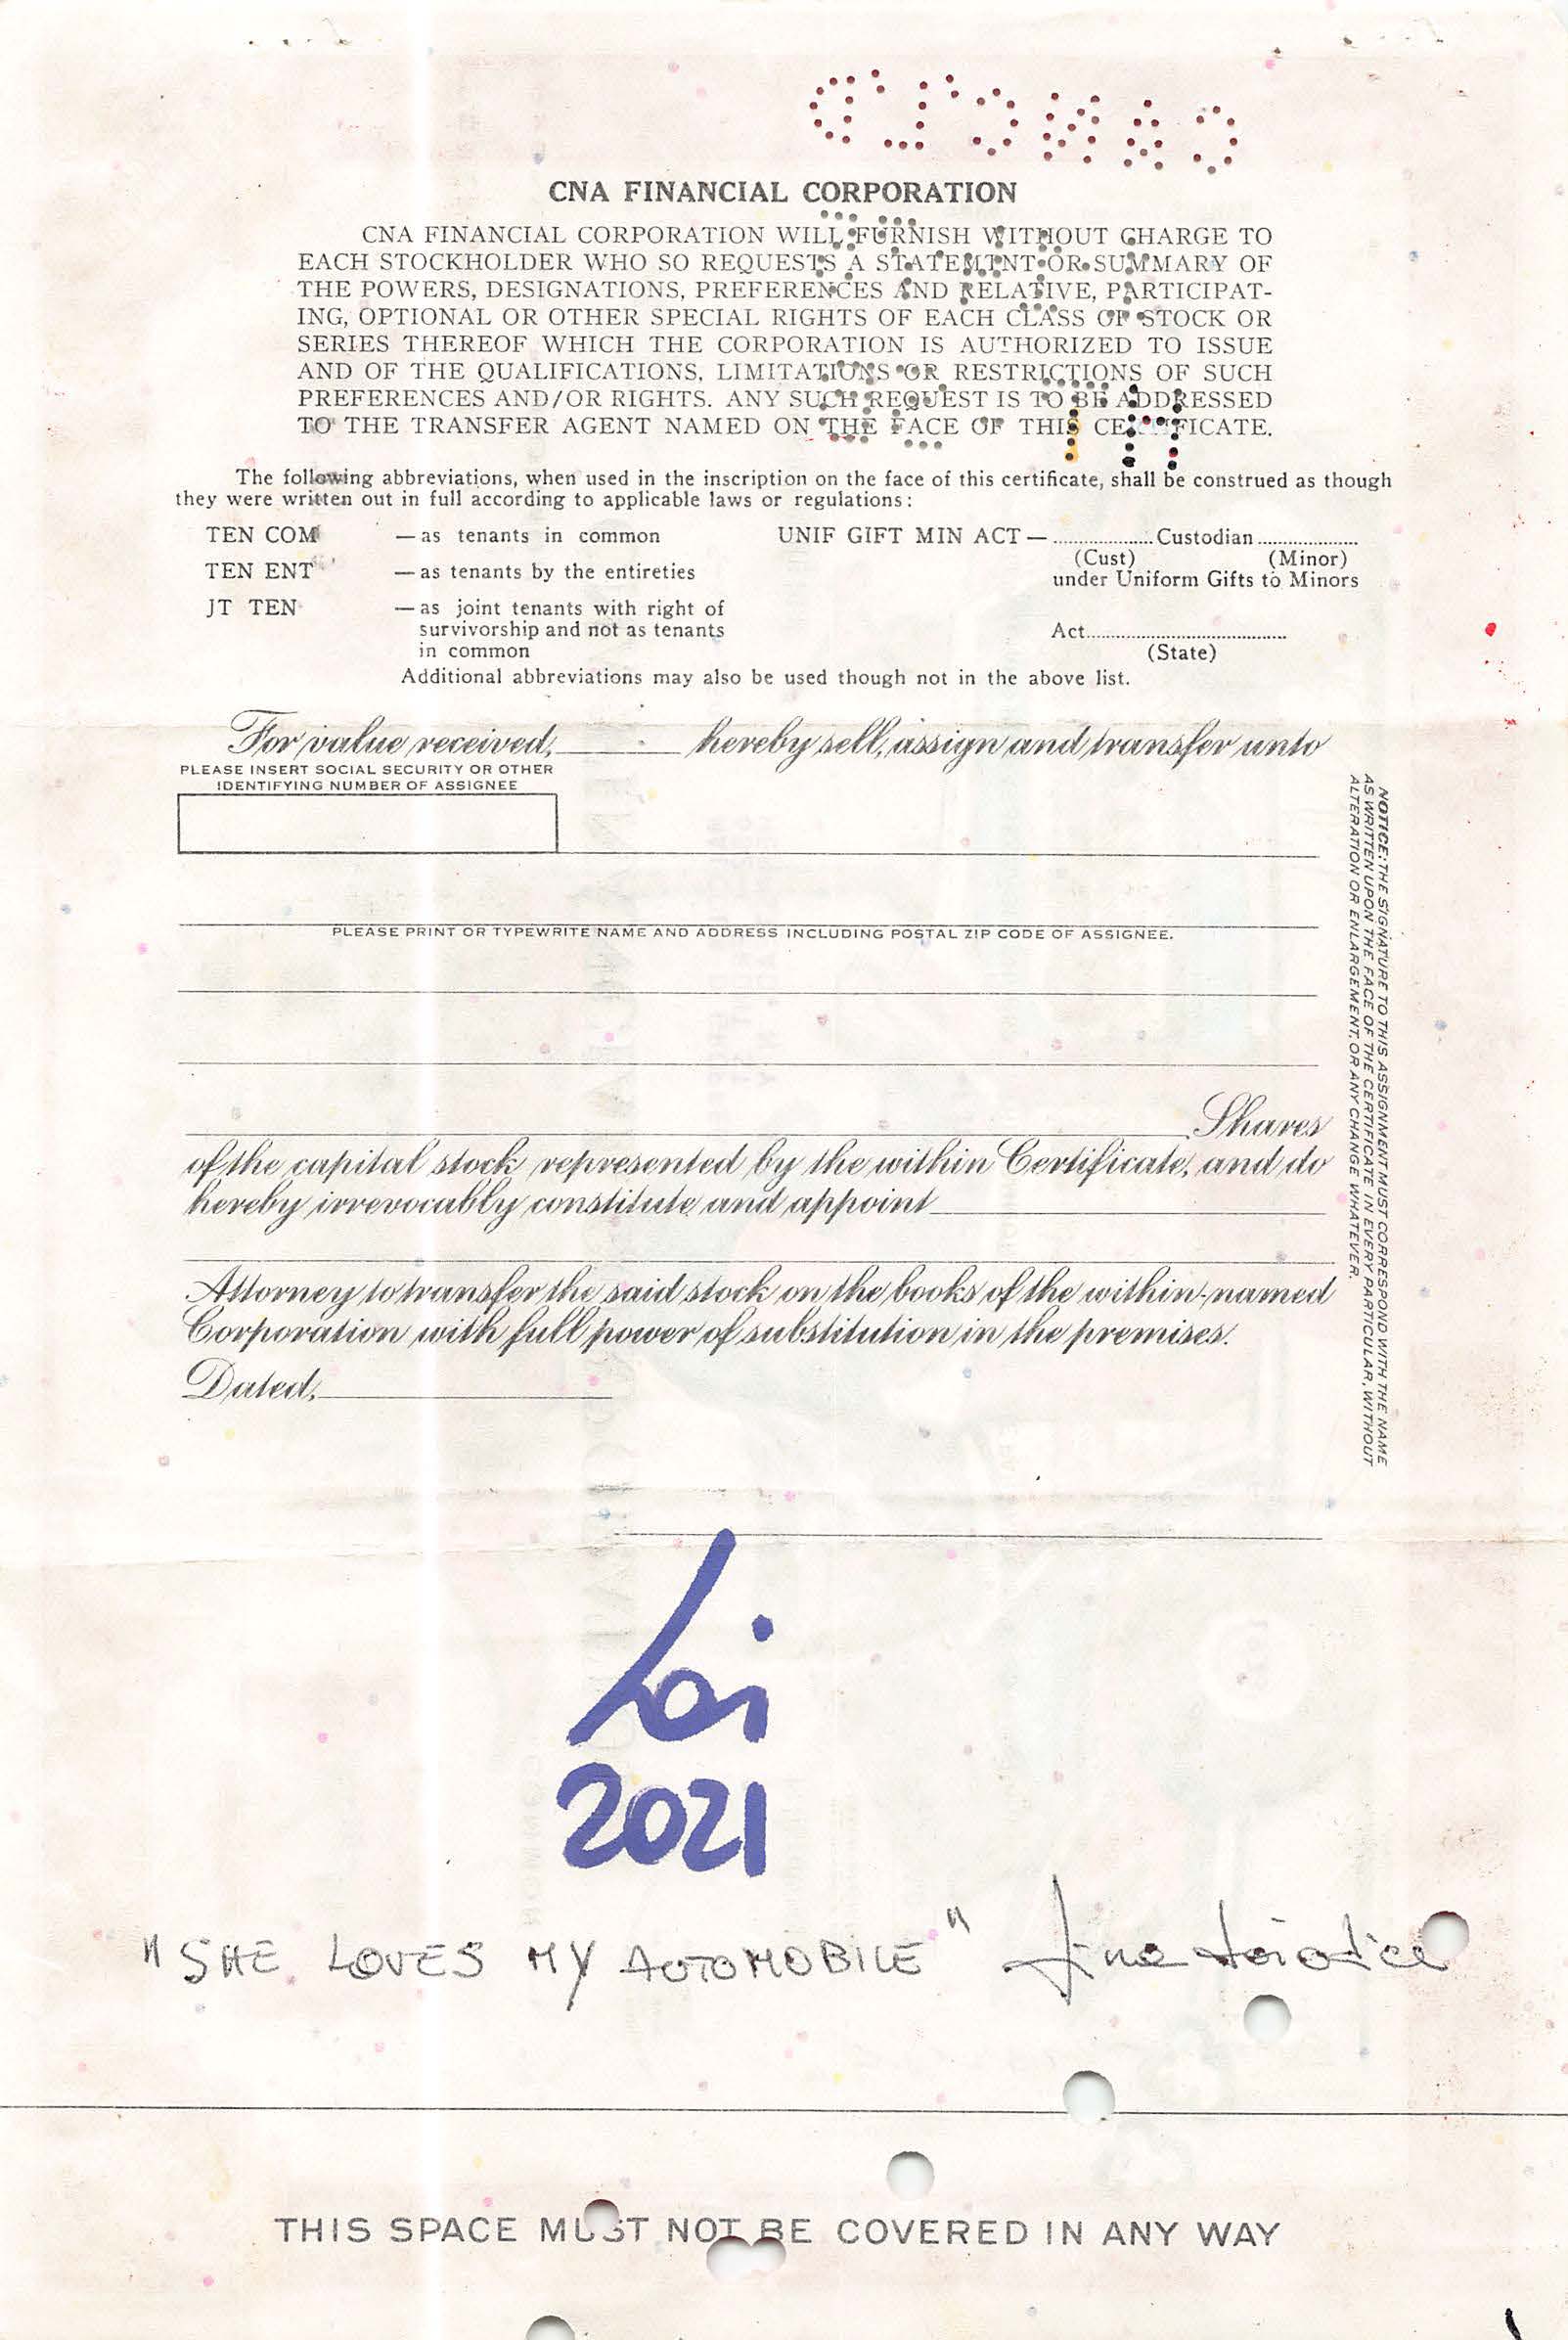 CNA FINANCIAL CORPORATION
CNA FINANCIAL CORPORATION WILL FURNISH WITHOUT CHARGE TO
EACH STOCKHOLDER WHO SO REQUESTS A STATEMENT OR SUMMARY OF
THE POWERS, DESIGNATIONS, PREFERENCES AND RELATIVE, PARTICIPAT-
ING, OPTIONAL OR OTHER SPECIAL RIGHTS OF EACH CLASS OF STOCK OR
SERIES THEREOF WHICH THE CORPORATION IS AUTHORIZED TO ISSUE
AND OF THE QUALIFICATIONS, LIMITATIONS OR RESTRICTIONS OF SUCH
PREFERENCES AND/OR RIGHTS. ANY SUCH REQUEST IS TO BE ADDRESSED
TO THE TRANSFER AGENT NAMED ON THE FACE OF THIS CERTIFICATE.
The following abbreviations, when used in the inscription on the face of this certificate, shall be construed as though
they were written out in full according to applicable laws or regulations:
TEN COM — as tenants in common
TEN ENT — as tenants by the entireties
JT TEN — as joint tenants with right of
survivorship and not as tenants
in common
UNIF GIFT MIN ACT — .................... Custodian ....................
(Cust) (Minor)
under Uniform Gifts to Minors
Act........................................
(State)
Additional abbreviations may also be used though not in the above list.
For value received, ________ hereby sell, assign and transfer unto
PLEASE INSERT SOCIAL SECURITY OR OTHER
IDENTIFYING NUMBER OF ASSIGNEE
PLEASE PRINT OR TYPEWRITE NAME AND ADDRESS INCLUDING POSTAL ZIP CODE OF ASSIGNEE.
Shares
of the capital stock represented by the within Certificate, and do
hereby irrevocably constitute and appoint
Attorney to transfer the said stock on the books of the within-named
Corporation with full power of substitution in the premises.
Dated,
NOTICE: THE SIGNATURE TO THIS ASSIGNMENT MUST CORRESPOND WITH THE NAME
AS WRITTEN UPON THE FACE OF THE CERTIFICATE IN EVERY PARTICULAR, WITHOUT
ALTERATION OR ENLARGEMENT, OR ANY CHANGE WHATEVER.
Loi
2021
"SHE LOVES MY AUTOMOBILE"
THIS SPACE MUST NOT BE COVERED IN ANY WAY